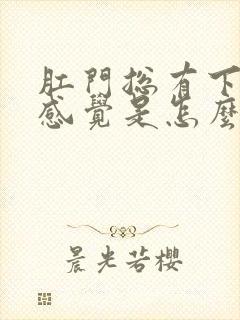 肛門总有下
感覺是怎麼
晨光若櫻